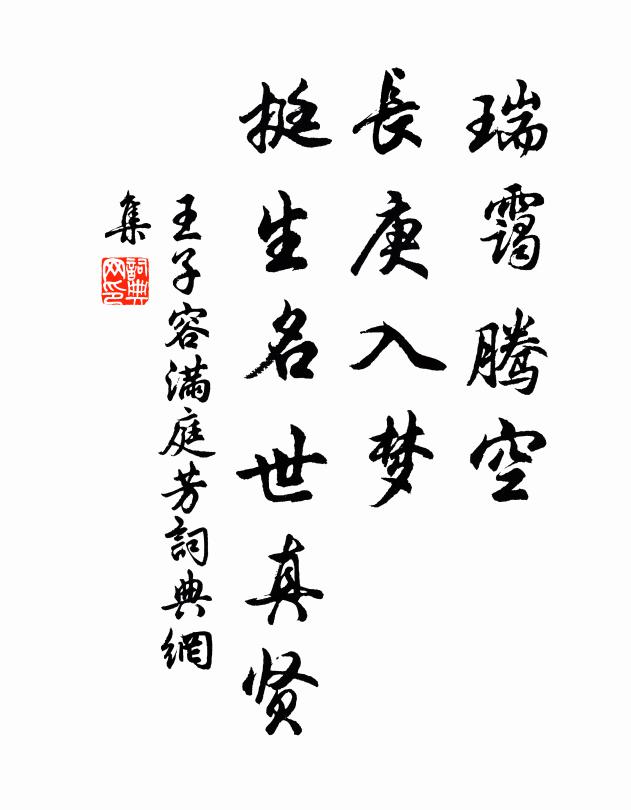 瑞霭腾空
長庚入梦
挺生名世真贤
王子容滿庭芳詞典網
集
詞典
网印